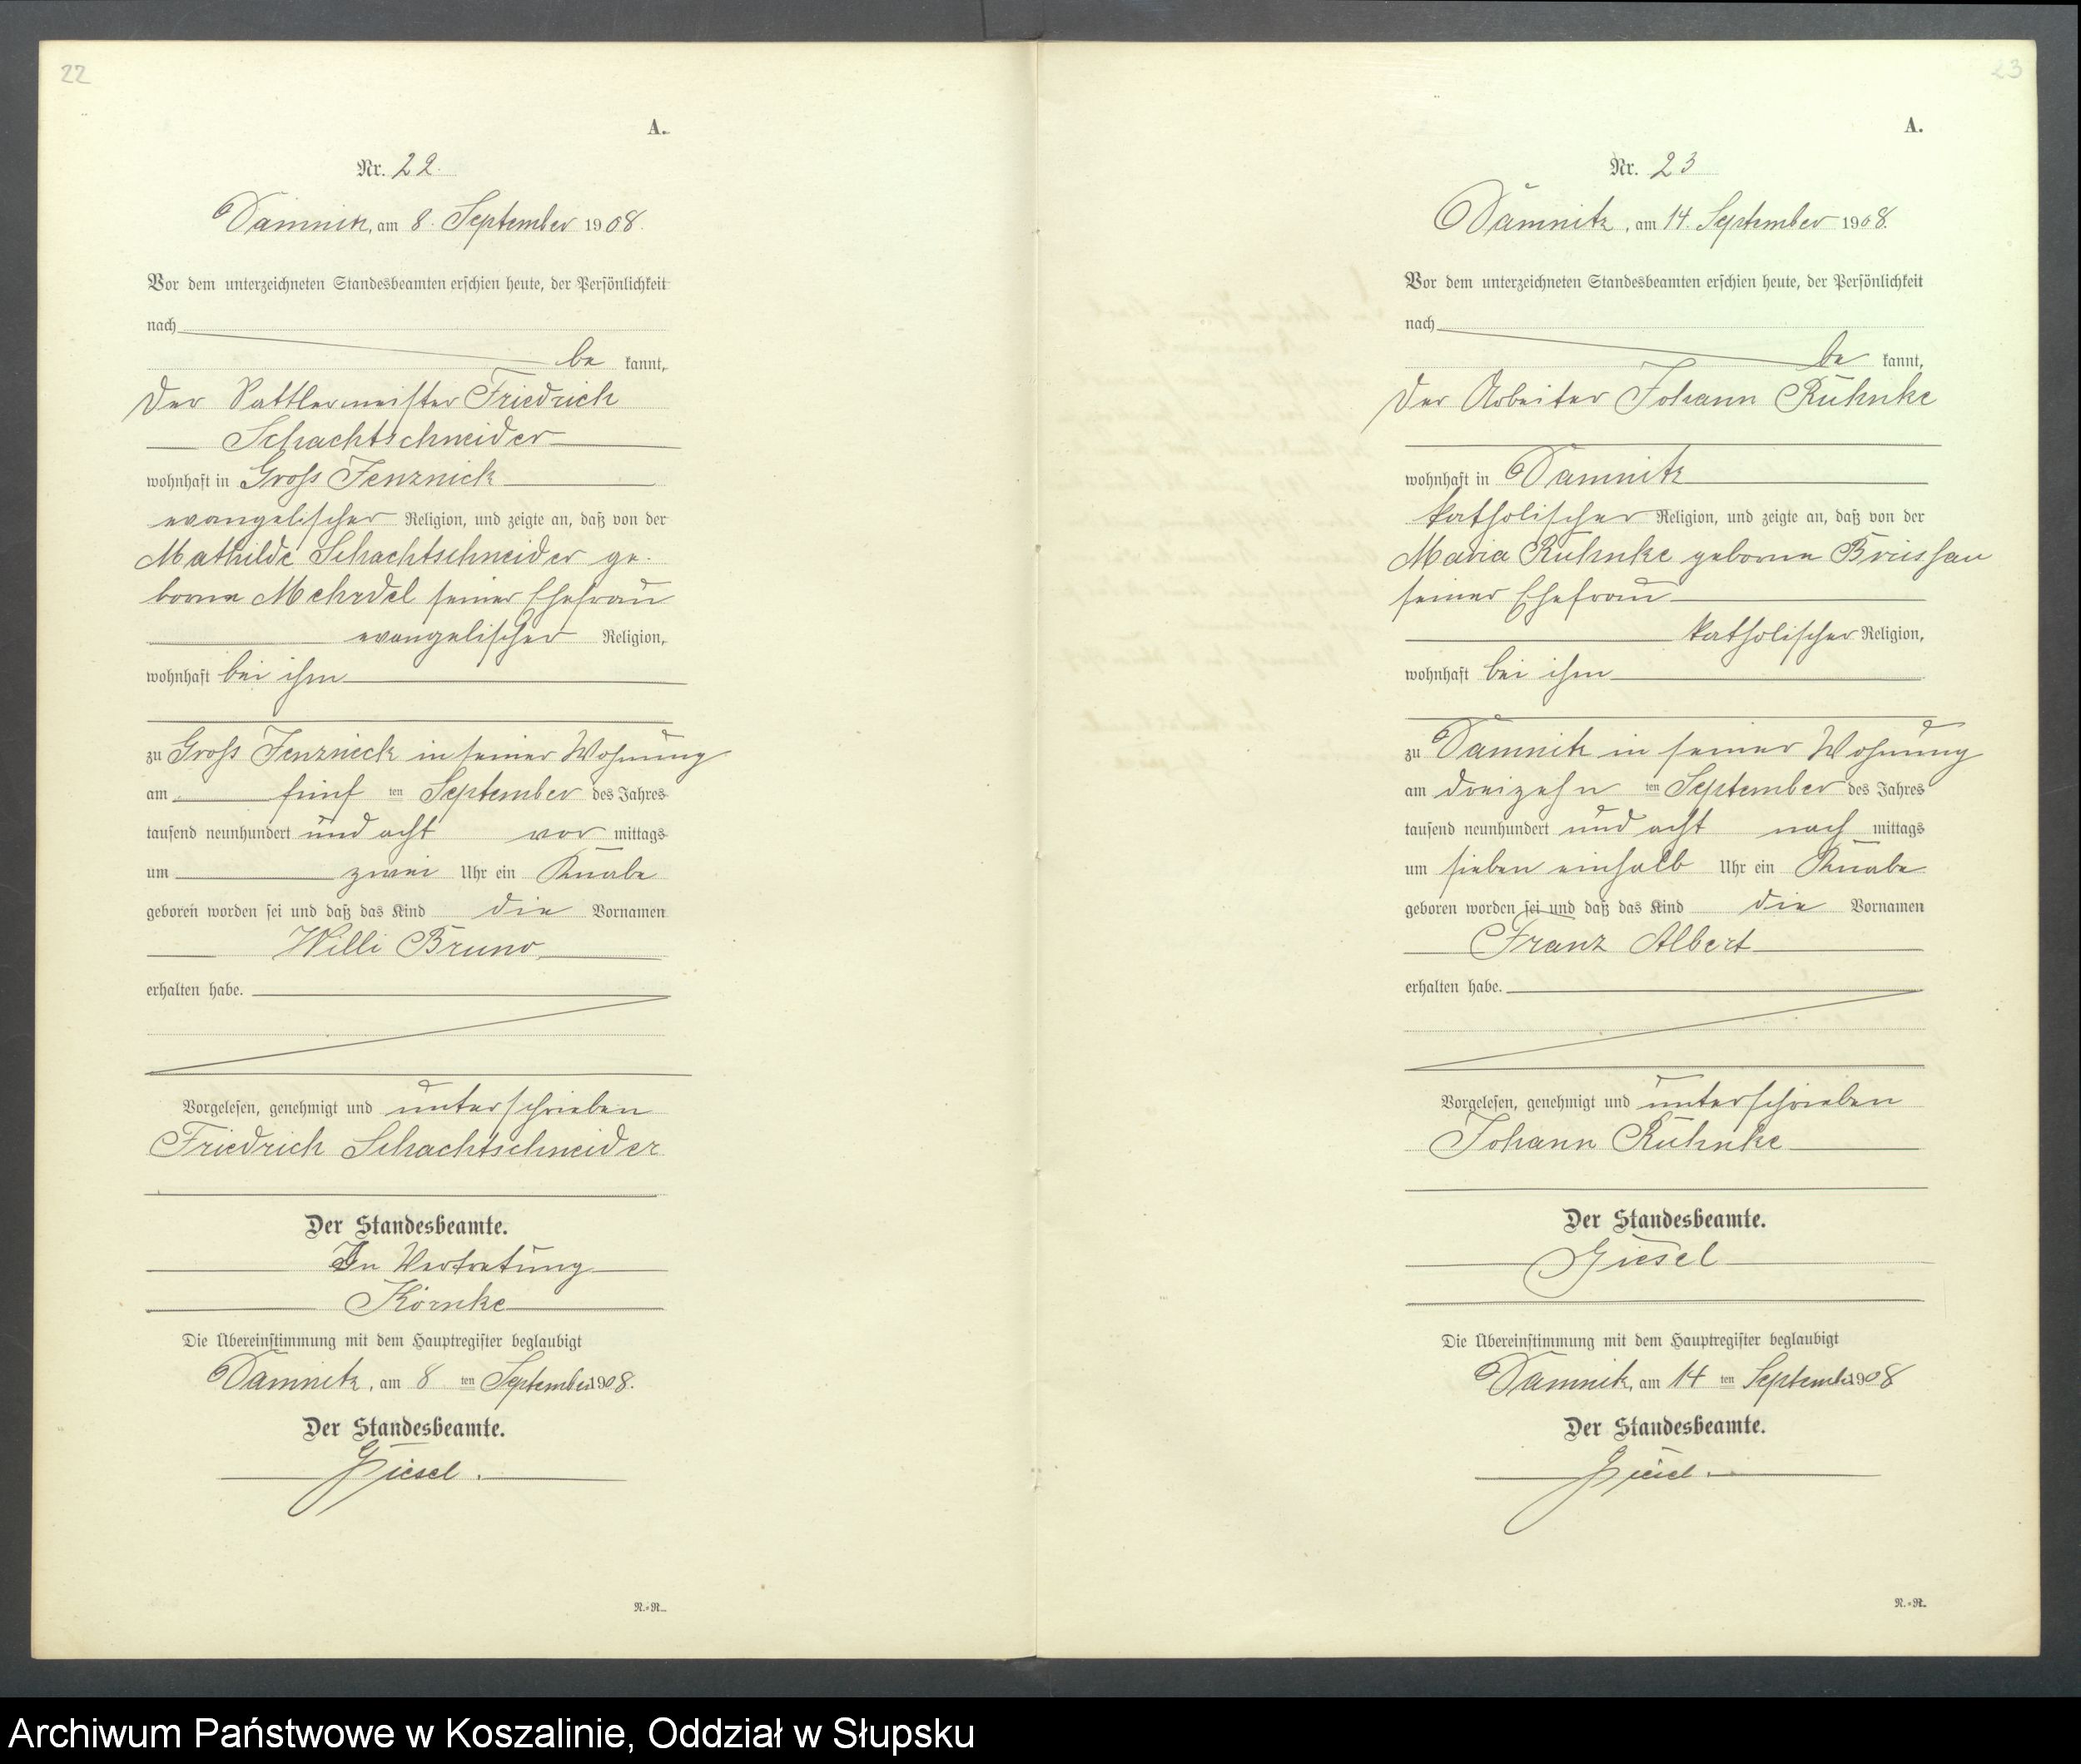 22
A.
Nr. 22.
Damnitz, am 8. September 1908.
Vor dem unterzeichneten Standesbeamten erschien heute, der Persönlichkeit
nach
be kannt,
der Sattlermeister Friedrich
Schachtschneider
wohnhaft in Gross Jenznick
evangelischer Religion, und zeigte an, daß von der
Mathilde Schachtschneider ge-
borne Mehrdel seiner Ehefrau
evangelischer Religion,
wohnhaft bei ihm
zu Gross Jenznick in seiner Wohnung
am fünf ten September des Jahres
tausend neunhundert und acht vor mittags
um zwei Uhr ein Knabe
geboren worden sei und daß das Kind die Vornamen
Willi Bruno
erhalten habe.
Vorgelesen, genehmigt und unterschrieben
Friedrich Schachtschneider
Der Standesbeamte.
In Vertretung
Körnke
Die Übereinstimmung mit dem Hauptregister beglaubigt
Damnitz, am 8 ten September 1908.
Der Standesbeamte.
Giesel.
N.=N.
23
A.
Nr. 23
Damnitz, am 14. September 1908.
Vor dem unterzeichneten Standesbeamten erschien heute, der Persönlichkeit
nach
be kannt,
der Arbeiter Johann Kuhnke
wohnhaft in Damnitz
katholischer Religion, und zeigte an, daß von der
Maria Kuhnke geborne
seiner Ehefrau
katholischer Religion,
wohnhaft bei ihm
zu Damnitz in seiner Wohnung
am dreizehn ten September des Jahres
tausend neunhundert und acht nach mittags
um sieben einhalb Uhr ein Knabe
geboren worden sei und daß das Kind die Vornamen
Franz Albert
erhalten habe.
Vorgelesen, genehmigt und unterschrieben
Johann Kuhnke
Der Standesbeamte.
Giesel
Die Übereinstimmung mit dem Hauptregister beglaubigt
Damnitz, am 14 ten September 1908
Der Standesbeamte.
Giesel.
N.=N.
Archiwum Państwowe w Koszalinie, Oddział w Słupsku